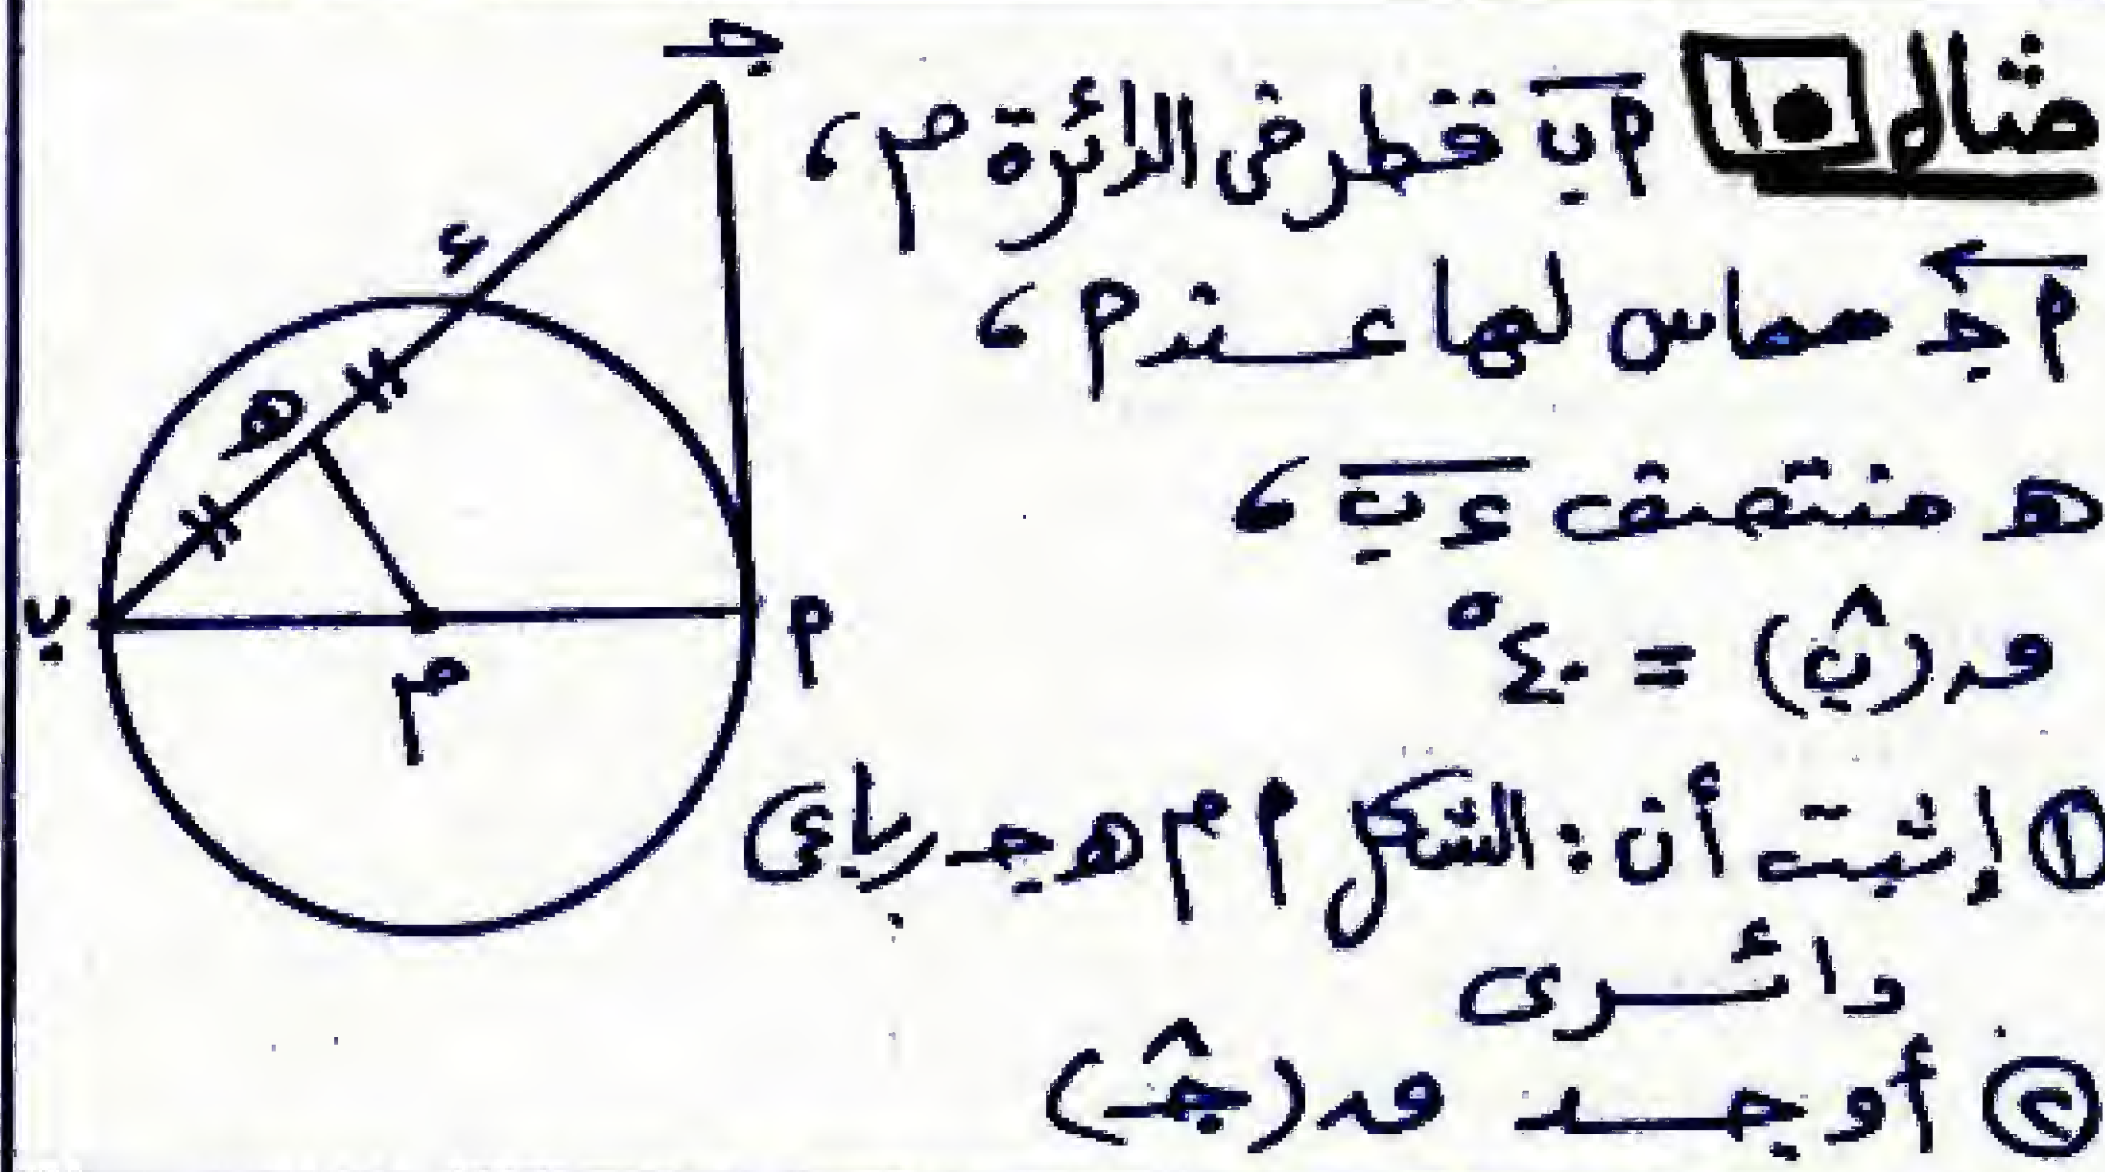 مثال ١٠ أب قطر في الدائرة م ،
أجـ مماس لها عند أ ،
هـ منتصف ء ب ،
ق (ب̂) = ٤٠°
① إثبت أن : الشكل أ م هـ جـ رباعى
دائرى
② أوجد ق (جـ̂)
جـ
ء
هـ
ب
م
أ